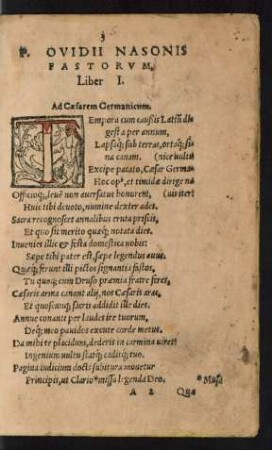 3
P. OVIDII NASONIS
FASTORVM,
Liber I.
Ad Cæsarem Germanicum.
TEmpora cum causis Latiũ di
gesta per annum,
Lapsaq; sub terras, ortaq; si
na canam. (nice vultu
Excipe pacato, Cæsar Germa
Hoc opꝰ, et timidæ dirige na
Officioq;, leuē non auersatus honorem, (uis iter:
Huic tibi deuoto, numine dexter ades.
Sacra recognosces annalibus eruta priscis,
Et quo sit merito quæq; notata dies.
Inuenies illic & festa domestica vobis:
Sæpe tibi pater est, sæpe legendus auus.
Quæq; ferunt illi pictos signantia fastos,
Tu quoq; cum Druso præmia fratre feres.
Cæsaris arma canant alij, nos Cæsaris aras,
Et quoscunq; sacris addidit ille dies.
Annue conanti per laudes ire tuorum,
Deq; meo pauidos excute corde metus.
Da mihi te placidum, dederis in carmina vires:
Ingenium vultu statq; caditq; tuo.
Pagina iudicium docti subitura mouetur
Principis, ut Clario missa legenda Deo.
* Musa
A 2 Quæ